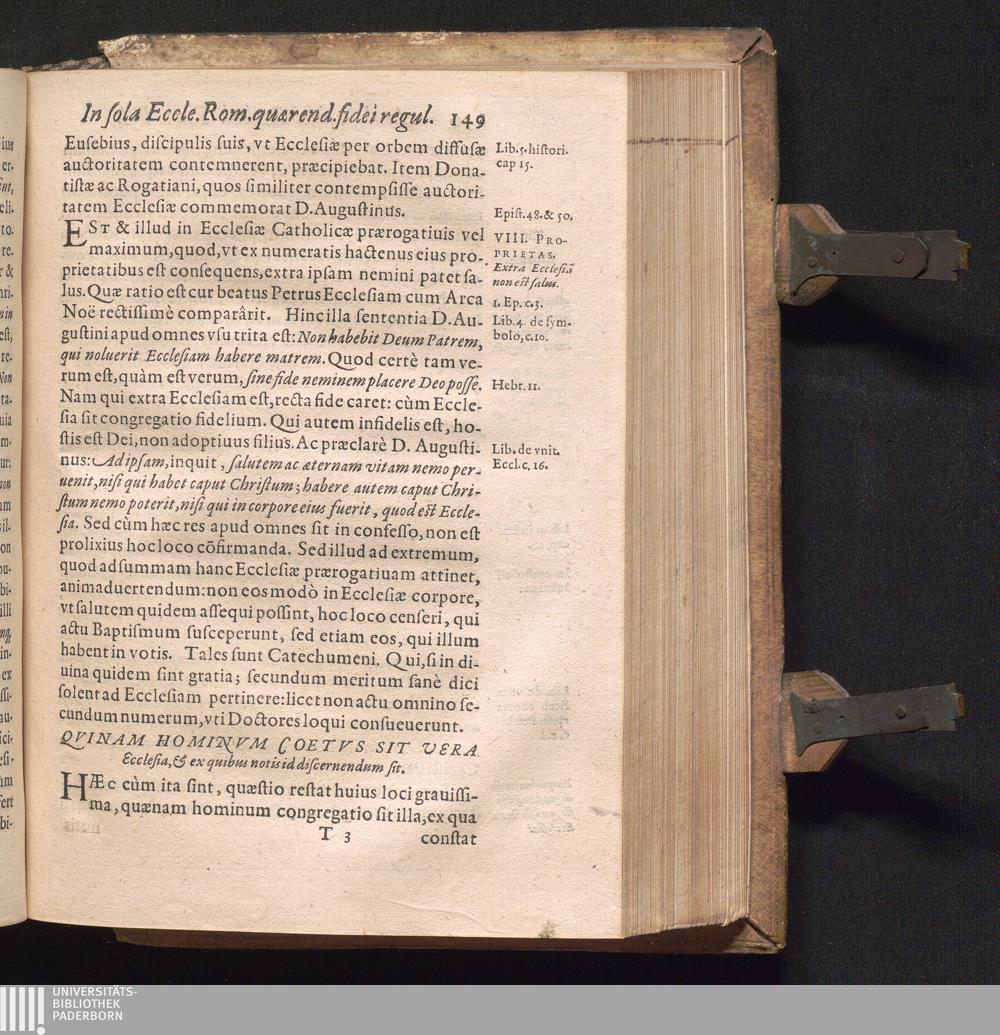 In sola Eccle. Rom. quærend. fidei regul. 149
Eusebius, discipulis suis, vt Ecclesiæ per orbem diffusæ
auctoritatem contemnerent, præcipiebat. Item Dona-
tistæ ac Rogatiani, quos similiter contempsisse auctori-
tatem Ecclesiæ commemorat D. Augustinus.
EST & illud in Ecclesiæ Catholicæ prærogatiuis vel
maximum, quod, vt ex numeratis hactenus eius pro-
prietatibus est consequens, extra ipsam nemini patet sa-
lus. Quæ ratio est cur beatus Petrus Ecclesiam cum Arca
Noë rectissimè comparârit. Hinc illa sententia D. Au-
gustini apud omnes vsu trita est: Non habebit Deum Patrem,
qui noluerit Ecclesiam habere matrem. Quod certè tam ve-
rum est, quàm est verum, sine fide neminem placere Deo posse.
Nam qui extra Ecclesiam est, recta fide caret: cùm Eccle-
sia sit congregatio fidelium. Qui autem infidelis est, ho-
stis est Dei, non adoptiuus filius. Ac præclarè D. Augusti-
nus: Ad ipsam, inquit, salutem ac æternam vitam nemo per-
uenit, nisi qui habet caput Christum; habere autem caput Chri-
stum nemo poterit, nisi qui in corpore eius fuerit, quod est Eccle-
sia. Sed cùm hæc res apud omnes sit in confesso, non est
prolixius hoc loco cõfirmanda. Sed illud ad extremum,
quod ad summam hanc Ecclesiæ prærogatiuam attinet,
animaduertendum: non eos modò in Ecclesiæ corpore,
vt salutem quidem assequi possint, hoc loco censeri, qui
actu Baptismum susceperunt, sed etiam eos, qui illum
habent in votis. Tales sunt Catechumeni. Qui, si in di-
uina quidem sint gratia; secundum meritum sanè dici
solent ad Ecclesiam pertinere: licet non actu omnino se-
cundum numerum, vti Doctores loqui consueuerunt.
QVINAM HOMINVM COETVS SIT VERA
Ecclesia, & ex quibus notis id discernendum sit.
HÆC cùm ita sint, quæstio restat huius loci grauissi-
ma, quænam hominum congregatio sit illa, ex qua
T 3 constat
Lib. 5. histori.
cap 15.
Epist. 48. & 50.
VIII. PRO-
PRIETAS.
Extra Ecclesiã
non est salus.
1. Ep. c. 3.
Lib. 4. de sym-
bolo, c. 10.
Hebr. 11.
Lib. de vnit.
Eccl. c. 16.
UNIVERSITÄTS-
BIBLIOTHEK
PADERBORN